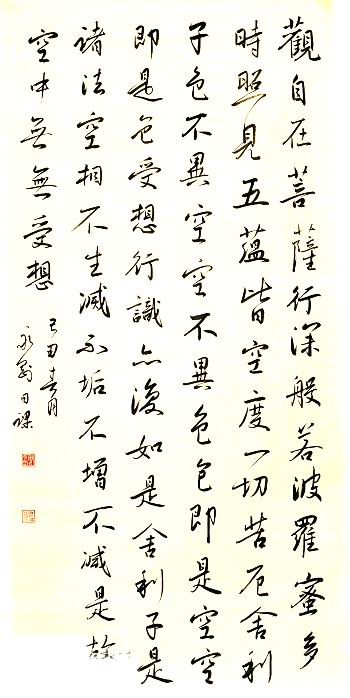 觀自在菩薩行深般若波羅蜜多
時照見五蘊皆空度一切苦厄舍利
子色不異空空不異色色即是空空
即是色受想行識亦復如是舍利子是
諸法空相不生滅不垢不增不减是故
空中無無受想
己丑春月
永剛日課